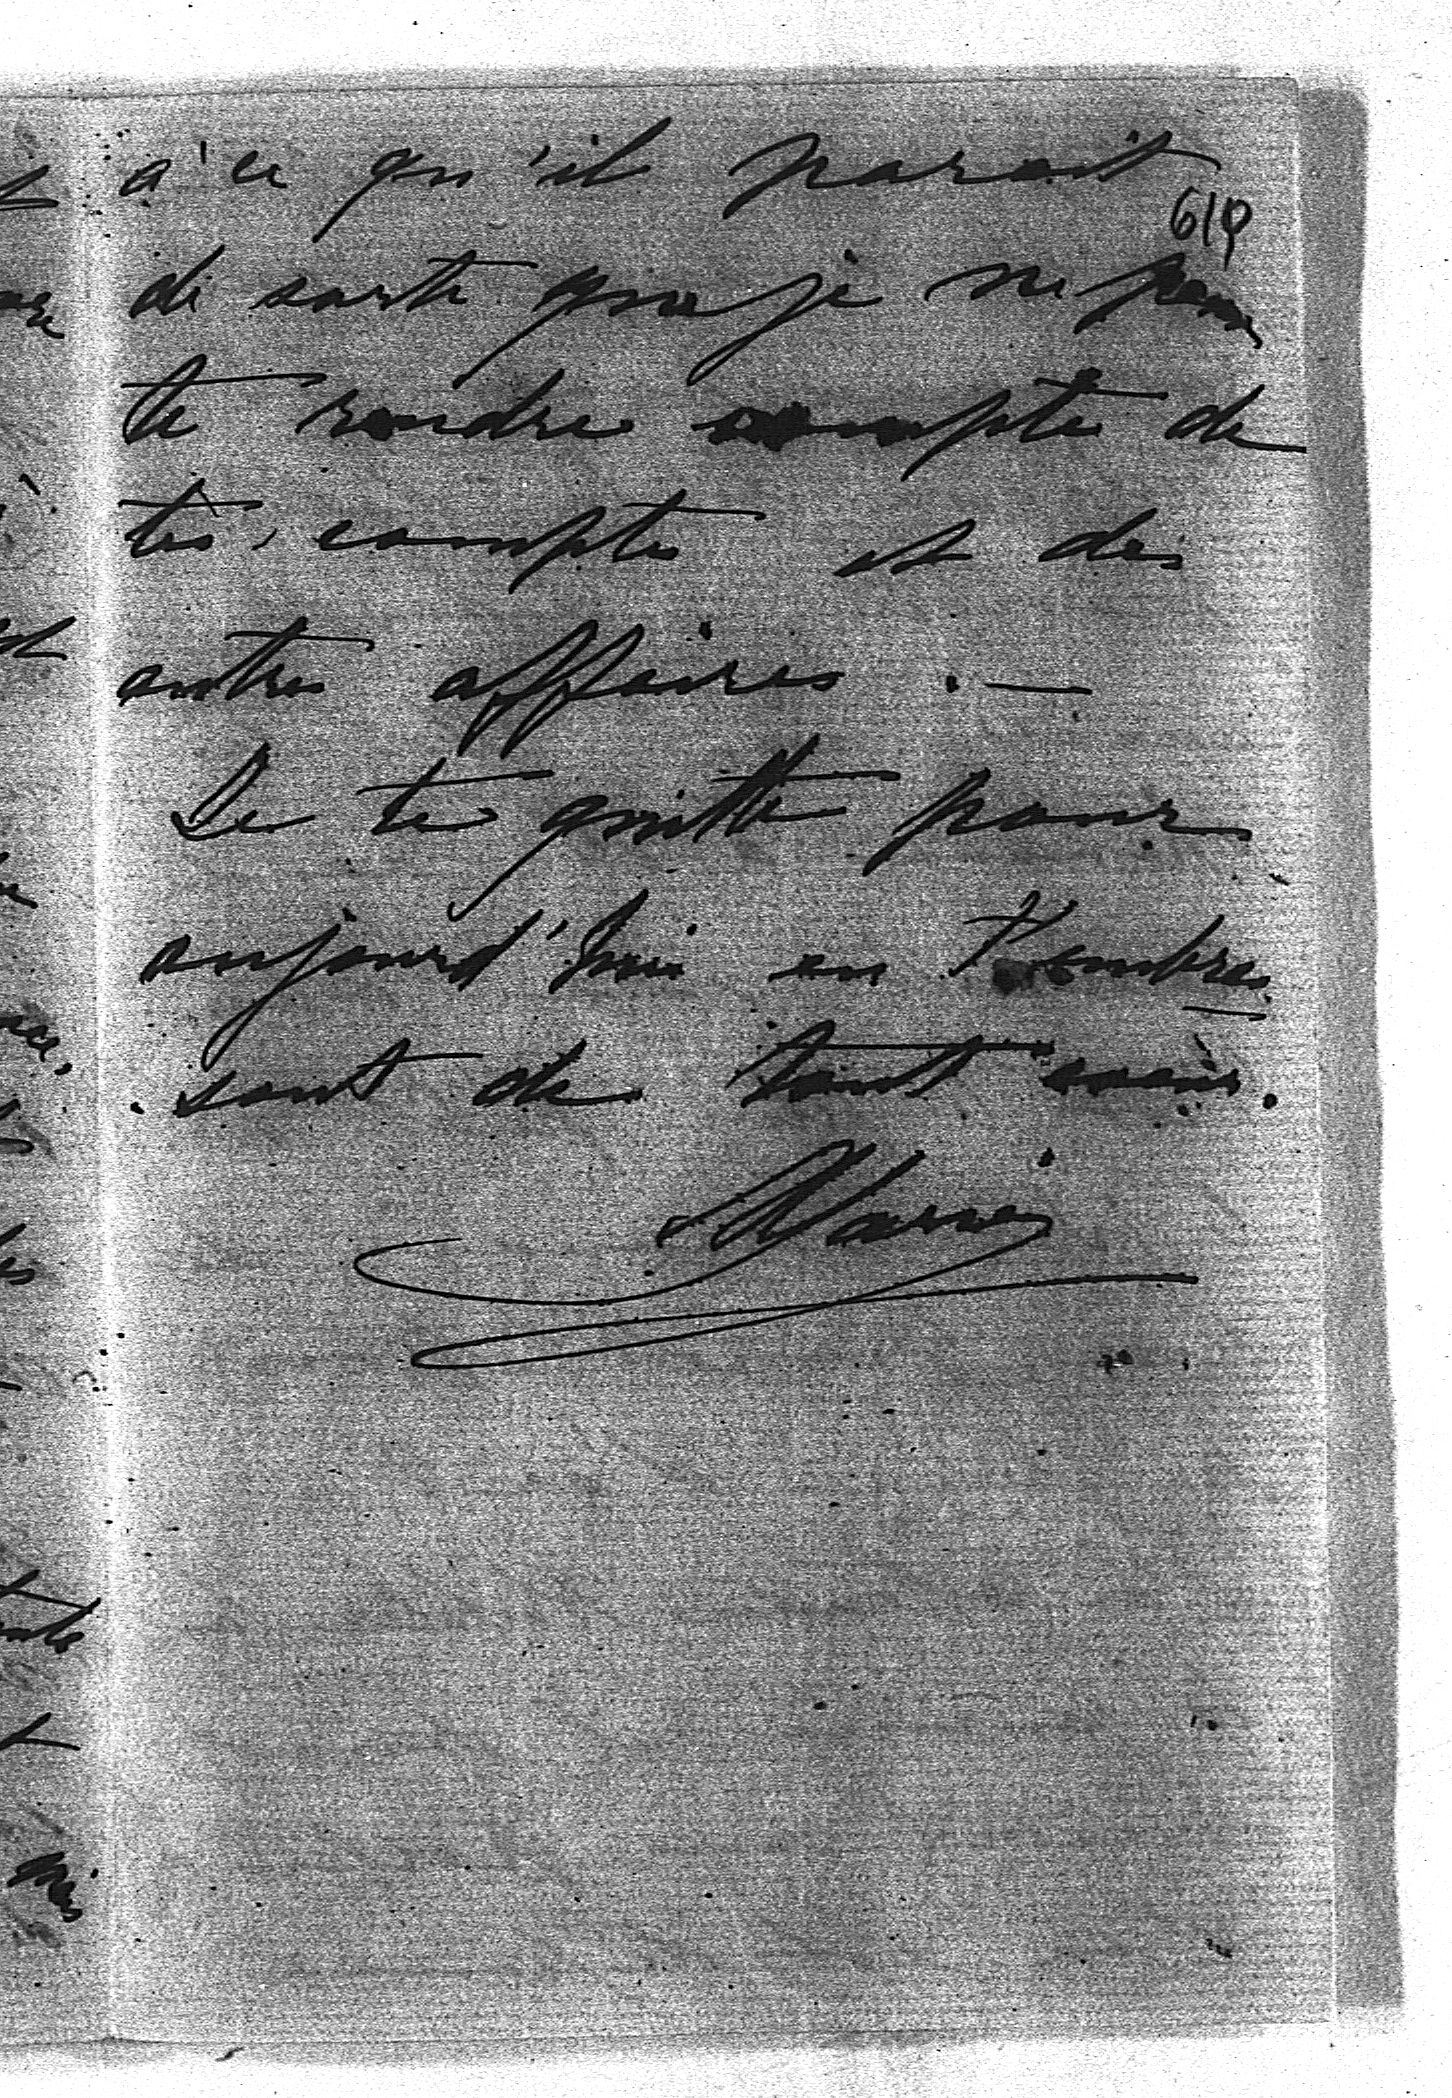 à ce qu'il parait
619
de sorte que je ne peux
te rendre compte de
tes compte et des
autres affaires . —
Je te quitte pour
aujourd'hui en t'embras
sant de tout cœur.
Marie